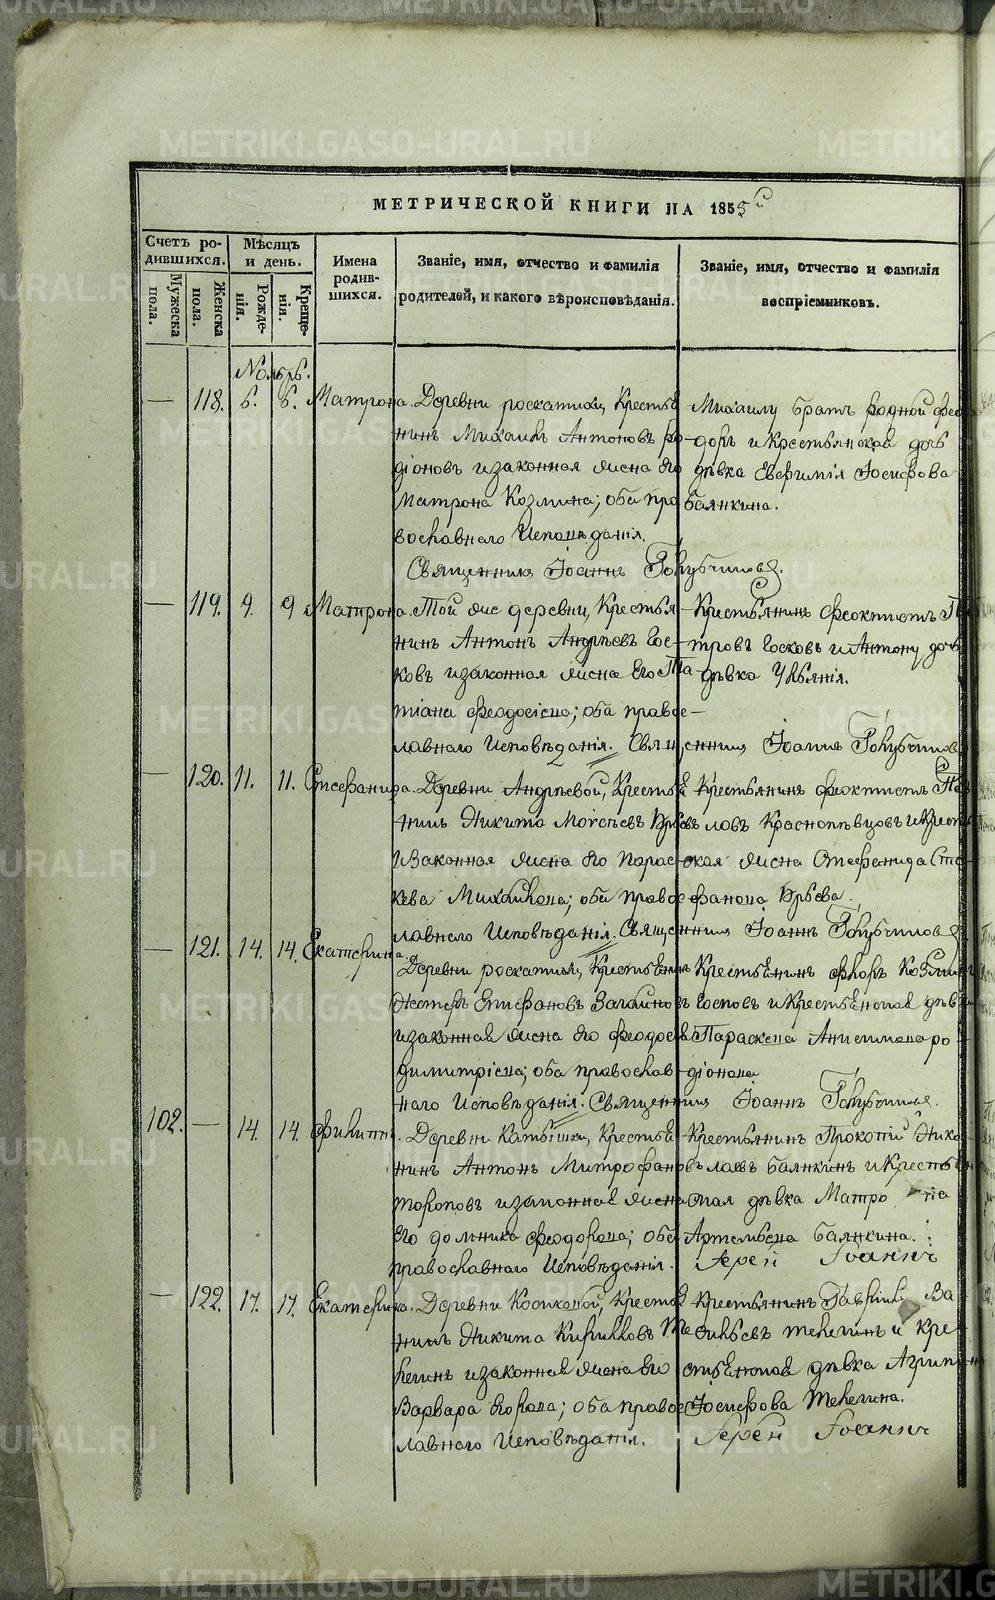 МЕТРИЧЕСКОЙ КНИГИ НА 1855й
Счетъ ро-
дившихся.
Мужеска
пола.
Женска
пола.
Мѣсяцъ
и день.
Рожде-
нія.
Креще-
нія.
Имена
родив-
шихся.
Званіе, имя, отчество и фамилія
родителей, и какого вѣроисповѣданія.
Званіе, имя, отчество и фамилія
воспріемниковъ.
Ноябрь.
— 118. 6. 6. Матрона.
Деревни Роскатихи, Крестья
нинъ Михаилъ Антоновъ Ро
діоновъ и законная жена его
Матрона Козмина; оба пра
вославнаго Исповѣданія.
Михаилу братъ родной Фео
доръ и Крестьянская дочь
дѣвка Евфимія Іосифова
Баянкина.
Священникъ Іоаннъ
— 119. 9. 9 Матрона.
Той же деревни, Крестья-
нинъ Антонъ Андреевъ Гос-
ковъ и законная жена Его Та-
тіана Феодосіева; оба право-
славнаго Исповѣданія.
Крестьянинъ Феоктистъ Пе
тровъ Госковъ и Антону дочь
дѣвка Уліянія.
Священникъ Іоаннъ
— 120. 11. 11. Стефанида.
Деревни Андреевой, Крестья
нинъ Никита Моисеевъ
и Законная жена Его Парас-
кева Михайлова; оба право
славнаго Исповѣданія.
Крестьянинъ Феоктистъ Пав
ловъ Краснопѣвцовъ и Крестьян
ская жена Стефанида Сте
фанова
Священникъ Іоаннъ
— 121. 14. 14. Екатерина.
Деревни Роскатихи, Крестьянинъ
Нестеръ Епифановъ
и законная жена Его Феодосія
Димитріева; оба православ-
наго Исповѣданія.
Крестьянинъ Флоръ Козмин
Госковъ и Крестьянская дѣв
Параскева Анисимова Ро
діонова
Священникъ Іоаннъ
102. — 14. 14. Филиппъ.
Деревни Камышки, Крестья
нинъ Антонъ Митрофановъ
Топоровъ и законная жена
Его Домника Феодорова; оба
православнаго Исповѣданія.
Крестьянинъ Прокопій Нико
лаевъ Баянкинъ и Крестьян
ская дѣвка Матрона
Артемьева Баянкина.
Іерей Іоаннъ
— 122. 17. 17. Екатерина.
Деревни Косиковой, Крестья
нинъ Никита Кирилловъ Те
легинъ и законная жена его
Варвара Егорова; оба право
славнаго Исповѣданія.
Крестьянинъ Гавріилъ Ва
сильевъ Телегинъ и Кре-
стьянская дѣвка Агрипин
Іосифова Телегина.
Іерей Іоаннъ
METRIKI.GASO-URAL.RU